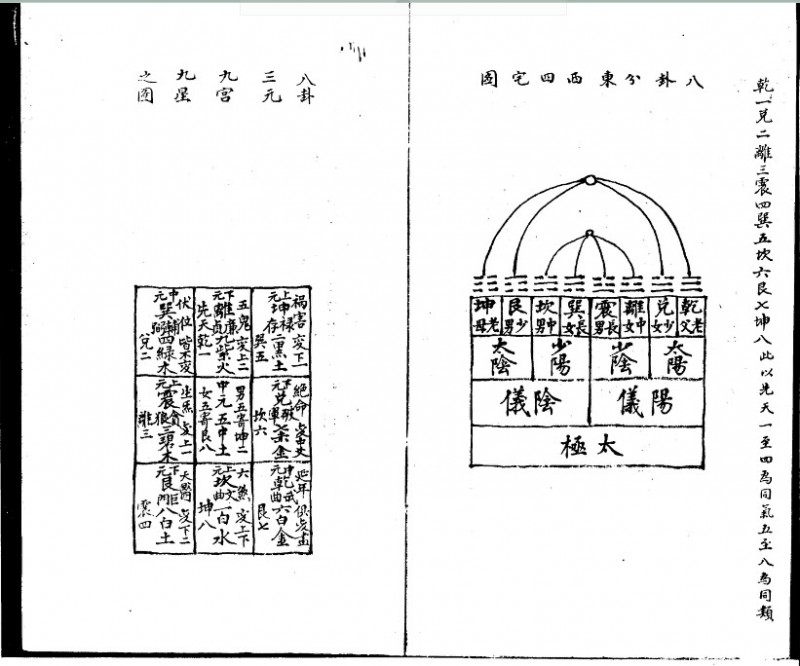 乾一兌二離三震四巽五坎六艮七坤八此以先天一至四為同氣五至八為同類
八卦分東西四宅圖
乾老父
兌少女
離中女
震長男
巽長女
坎中男
艮少男
坤老母
太陽
少陰
少陽
太陰
陽儀
陰儀
太極
八卦
三元
九宮
九星
之圖
禍害变下一
上元坤祿存二黑土
巽五
五鬼变上二
下元離廉貞九紫火
先天乾一
伏位皆不变
中元巽輔弼四綠木
兌二
絕命变中爻
下元兌破軍七赤金
坎六
男五寄坤二
中元五中土
女五寄艮八
生炁变上一
上元震貪狼三碧木
離三
延年俱变
中元乾武曲六白金
艮七
六煞变上下
上元坎文曲一白水
坤八
天醫变下二
下元艮巨門八白土
震四